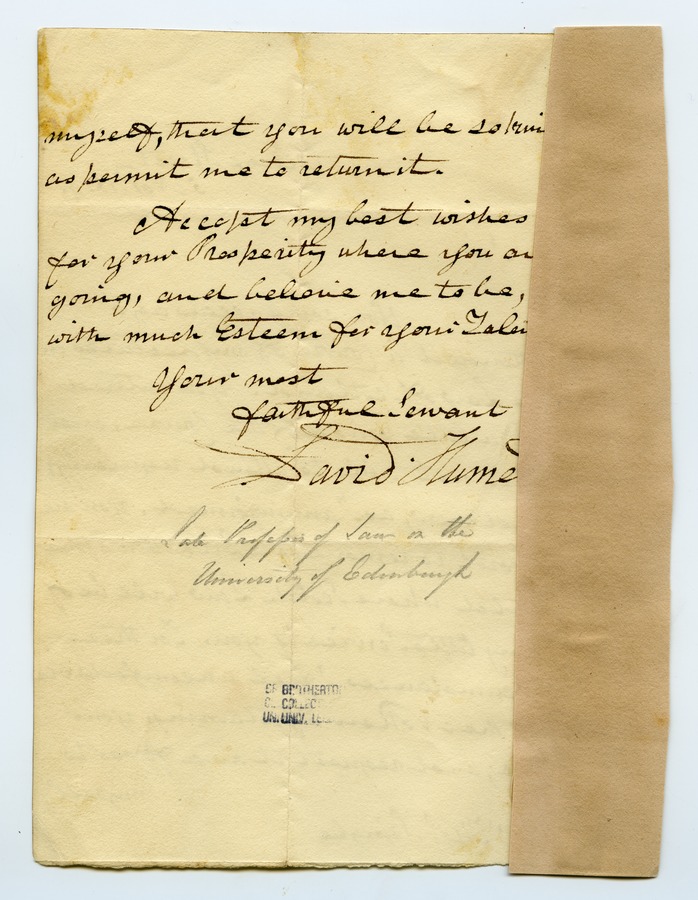 myself, that you will be so kin
as permit me to return it.
Accept my best wishes
for your Prosperity where you ar
going, and believe me to be,
with much Esteem for your Talen
Your most
faithful Servant
David Hume
Late Professor of Law in the
University of Edinburgh
BROTHERTO
COLLEC
UNIV. LE